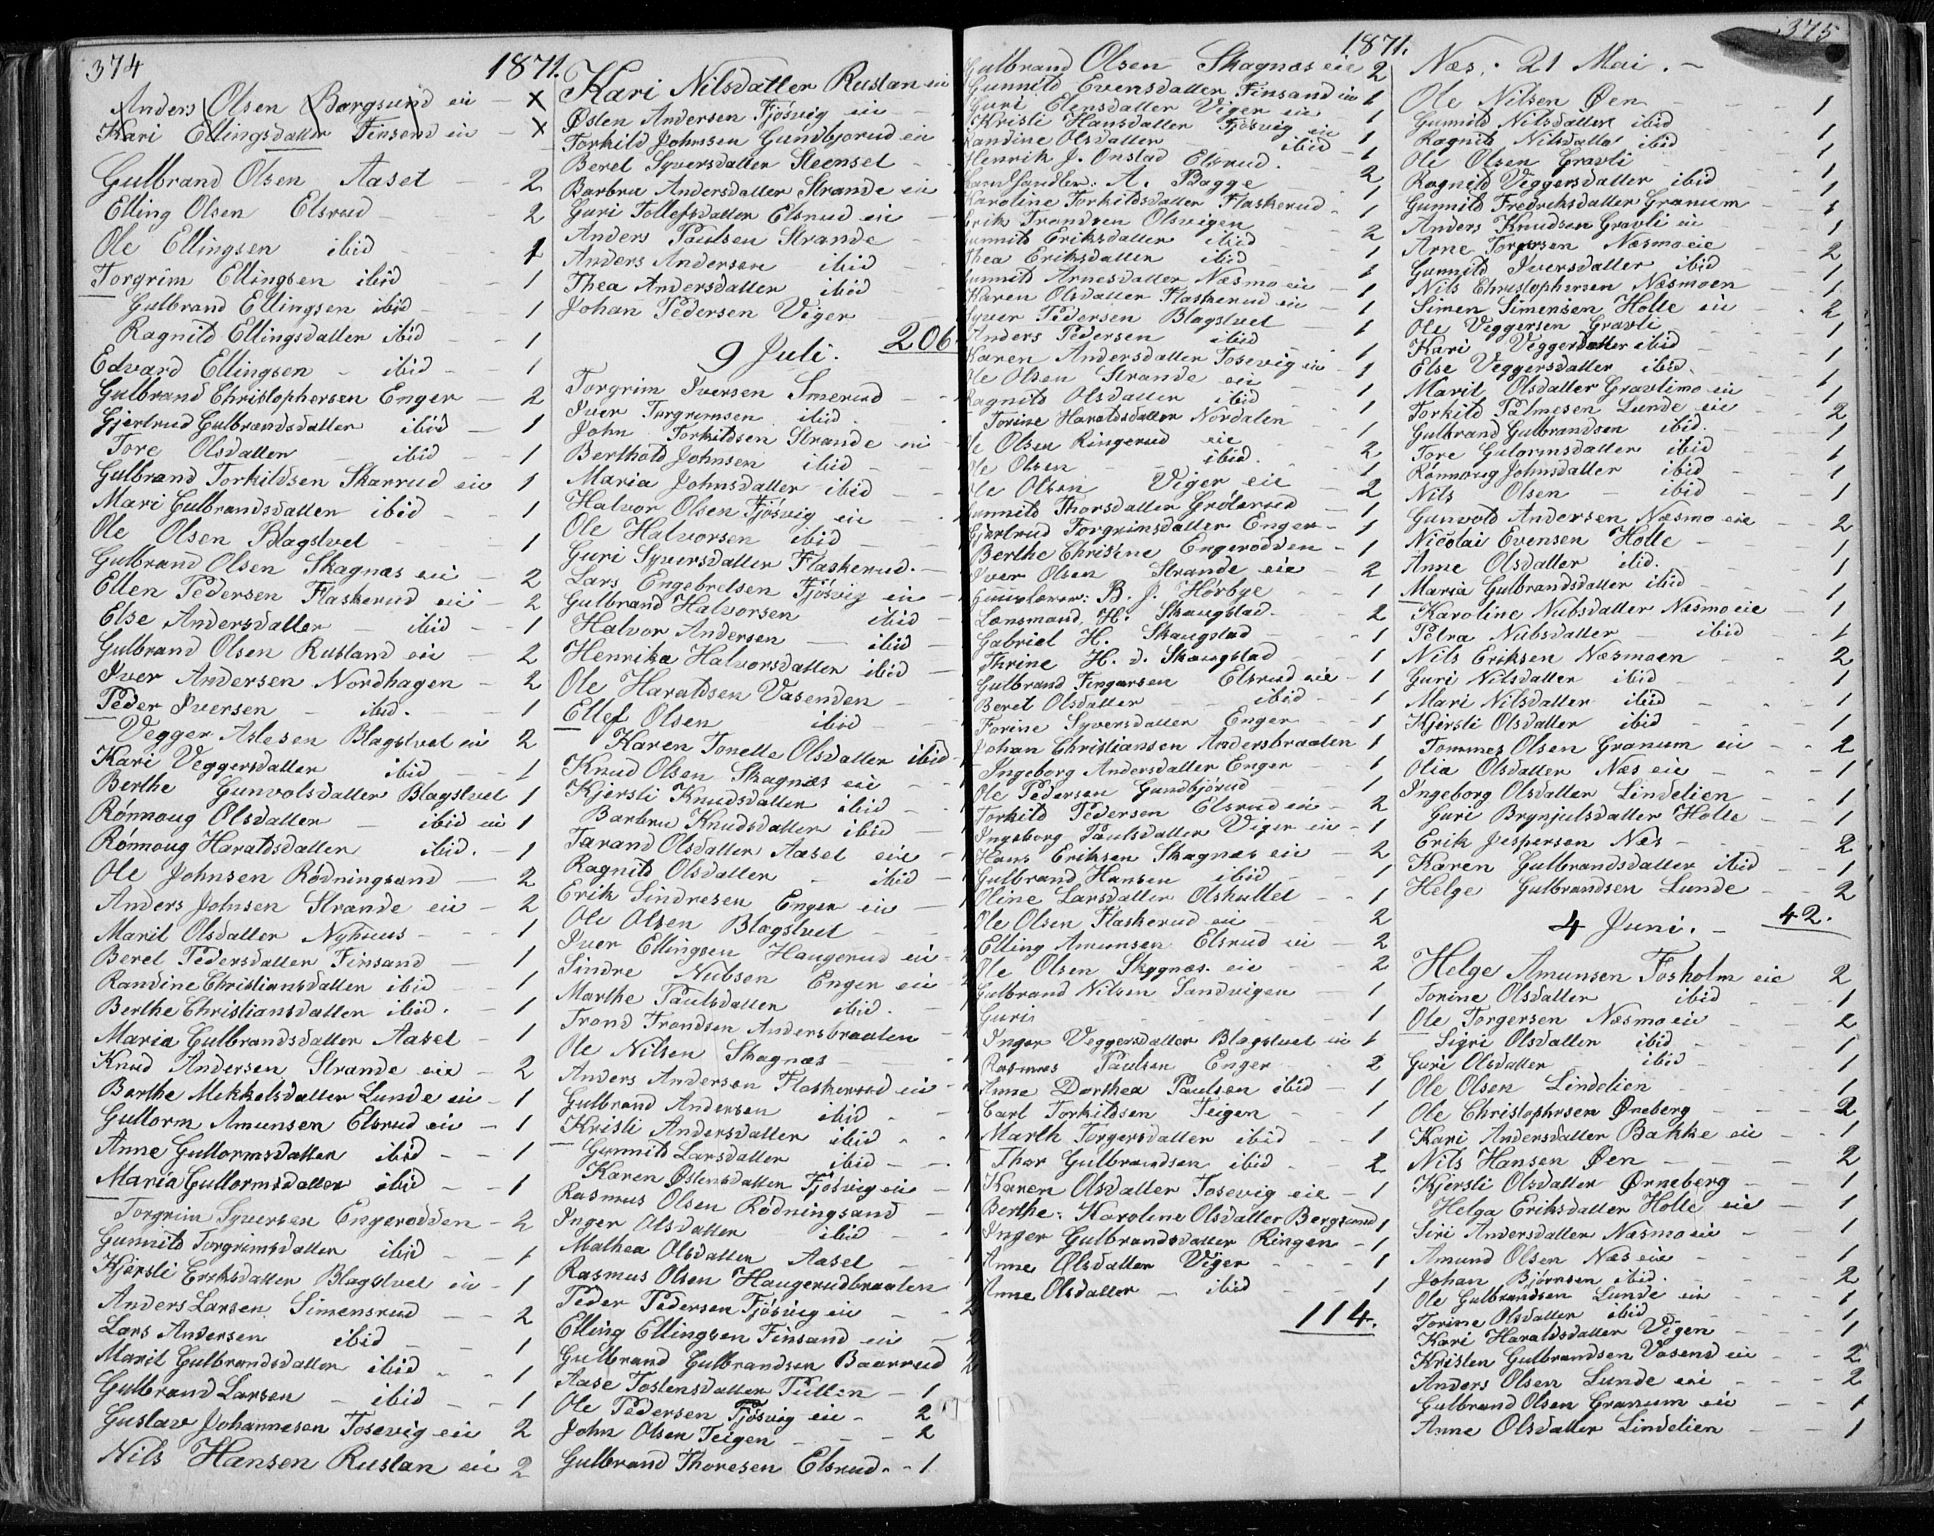 374
1871.
Anders Olsen Borgsund eie - x
Kari Ellingsdatter Finsand eie - x
Gulbrand Olsen Aaset - - 2
Elling Olsen Elsrud - - 2
Ole Ellingsen ibid - - 1
Torgrim Ellingsen ibid - - 1
Gulbrand Ellingsen ibid - - 1
Ragnild Ellingsdatter ibid - - 1
Edvard Ellingsen - ibid - - 1
Gulbrand Christophersen Enger - 2
Gjertrud Gulbrandsdatter ibid - 1
Tore Olsdatter - ibid - - 1
Gulbrand Torkildsen Skarrud eie 1
Mari Gulbrandsdatter ibid - - 1
Ole Olsen Blagstvet - - - 1
Gulbrand Olsen Skagnæs eie - 2
Ellen Pedersen Flaskerud eie - 2
Else Andersdatter - ibid - - 1
Gulbrand Olsen Rustand eie - 2
Iver Andersen Nordhagen - 2
Peder Iversen - ibid. - 1
Vegger Aslesen Blagstvet eie 2
Kari Veggersdatter ibid - - 1
Berthe Gunvolsdatter Blagstvet 1
Rønnoug Olsdatter - ibid eie 1
Rønnoug Haraldsdatter ibid. - 1
Ole Johnsen Rødningsand - 2
Anders Johnsen Strande eie - 2
Marit Olsdatter Nyhuus - - 1
Beret Pedersdatter Finsand - 1
Randine Christiansdatter ibid - 1
Berthe Christiansdatter ibid. - 1
Maria Gulbrandsdatter Aaset - 1
Knud Andersen Strande eie - 2
Berthe Mekkelsdatter Lunde eie - 1
Guttorm Amunsen Elsrud eie - 1
Anne Guttormsdatter ibid - - 1
Maria Guttormsdatter ibid - - 1
Torgrim Syversen Engerodden - 2
Gunnild Torgrimsdatter ibid - 1
Kjersti Eriksdatter Blagstvet eie - 1
Anders Larsen Simensrud - - 2
Lars Andersen ibid - - 1
Marit Gulbrandsdatter ibid - - 1
Gulbrand Larsen - ibid - - 1
Gustav Johannesen Tosevig eie 2
Nils Hansen Rustan eie 2
Kari Nilsdatter Rustan eie
Østen Andersen Fjøsvig eie -
Torkild Johnsen Gundbjørud eie
Beret Syversdatter Steenset - -
Barbru Andersdatter Strande eie
Guri Tollefsdatter Elsrud eie -
Anders Paulsen Strande -
Anders Andersen ibid - -
Thea Andersdatter ibid -
Johan Pedersen Viger - -
206
9 Juli.
Torgrim Iversen Smerud - -
Iver Torgrimsen ibid -
John Torkildsen Strande eie -
Berthold Johnsen ibid -
Maria Johnsdatter ibid - -
Halvor Olsen Fjøsvig eie - -
Ole Halvorsen ibid - -
Guri Syversdatter Flaskerud. -
Lars Engebretsen Fjøsvig eie -
Gulbrand Halvorsen ibid -
Halvor Andersen - ibid -
Henrika Halvorsdatter ibid -
Ole Haraldsen Vasenden -
Ellef Olsen ibid - -
Karen Tonette Olsdatter ibid -
Knud Olsen Skagnæs eie -
Kjersti Knudsdatter ibid -
Barbru Knudsdatter ibid -
Tarand Olsdatter Aaset eie -
Ragnild Olsdatter - ibid - 1
Erik Sindresen Enger eie -
Ole Olsen Blagstvet - -
Iver Ellingsen Haugerud eie -
Sindre Nubsen Enger eie -
Marthe Paulsdatter ibid. -
Trond Trondsen Andersbraaten
Ole Nilsen Skagnæs - - 1
Anders Andersen Flaskerud eie -
Gulbrand Andersen ibid - -
Kristi Andersdatter ibid - -
Gunnild Larsdatter ibid - -
Karen Østensdatter Fjøsvig eie -
Rasmus Olsen Rødningsand - 1
Inger Olsdatter ibid - -
Mathea Olsdatter Aaset - - 1
Rasmus Olsen Haugerudbraaten 1
Peder Pedersen Fjøsvig eie - 2
Elling Ellingsen Finsand eie - 2
Gulbrand Gulbrandsen Baarrud 2
Aase Tostensdatter Putten - 1
Ole Pedersen Fjøsvig eie - 2
John Olsen Teigen - - - 2
Gulbrand Thoresen Elsrud. - 1
1871.
Gulbrand Olsen Skagnæs eie 2
Gunnild Evensdatter Finsand eie 1
Guri Elensdatter Viger eie 1
Kristi Hansdatter Fjøsvig eie 1
Randine Olsdatter ibid - 1
Henrik J. Onstad Elsrud. 2
Handler: A. Bagge 1
Karoline Torkildsdatter Flaskerud - 1
Erik Trondsen Olsvigen - 2
Gunnild Eriksdatter ibid - 1
Thea Eriksdatter ibid - 1
Gunnild Arnesdatter Næsmo eie - 1
Karen Olsdatter Flaskerud eie - 1
Syver Pedersen Blagstvet - 1
Anders Pedersen ibid -
Karen Andersdatter Tosevig eie - 1
Ole Olsen Strande eie - 1
Ragnild Olsdatter ibid - 1
Torine Haraldsdatter Nordalen 1
Ole Olsen Ringerud eie 2
Ole Olsen - ibid. - 1
Ole Olsen Viger eie - 2
Gunnild Thorsdatter Grøterud - 1
Gjertrud Torgrimsdatter Enger - 1
Berthe Christine Engerodden - 1
Iver Olsen Strande eie - 2
B. J. Hørbye - - 1
Lænsmand, H. Skaugstad. 2
Gabriel H. Skaugstad - - 1
Thrine H. d. Skaugstad - - 1
Gulbrand Fingarsen Elsrud eie - 1
Beret Olsdatter - ibid - 1
Torine Syversdatter Enger - - 1
Johan Christiansen Andersbraaten 1
Ingeborg Andersdatter Enger - - 1
Ole Pedersen Gundbjørud - - 1
Torkild Pedersen Elsrud eie - 2
Ingeborg Paulsdatter Viger eie - 1
Hans Eriksen Skagnæs eie - 2
Gulbrand Hansen ibid - - 1
Oline Larsdatter Olshullet - - 1
Ole Olsen Flaskerud eie - - 2
Elling Amunsen Elsrud eie - 2
Ole Olsen Skagnæs. eie - - 2
Gulbrand Nilsen Sandvigen - 1
Guri - - - - 1
Inger Veggersdatter Blagstvet eie 1
Rasmus Paulsen Enger - - 2
Anne Dorthea Paulsen ibid - 1
Carl Torkildsen Teigen - - 1
Marth Torgersdatter ibid - - 1
Thor Gulbrandsen ibid - - 2
Karen Olsdatter Tosevig eie - 1
Berthe Karoline Olsdatter Bergsund 1
Inger Gulbrandsdatter Ringen - 1
Anne Olsdatter Viger - - - 1
Anne Olsdatter - ibid - - 1
114.
375
Næs. 21 Mai. -
Ole Nilsen Øen - - - - 1
Gunnild Nilsdatter ibid - - 1
Ragnild Nilsdatter ibid - - 1
Ole Olsen Gravli - - - 1
Ragnild Veggersdatter ibid - - 1
Gunnild Fredriksdatter Granum - - 1
Anders Knudsen Gravli eie - - 1
Arne Torgersen Næsmo eie - - 2
Gunnild Iversdatter ibid - - 1
Nils Christophersen Næsmoen - - 1
Simen Simensen Holte eie - - 2
Ole Veggersen Gravli - - 1
Kari Veggersdatter ibid - - 1
Else Veggersdatter ibid. - - 1
Marit Olsdatter Gravlimo eie - - 1
Torkild Palmesen Lunde eie - - 2
Gulbrand Gulbrandsen ibid. - 1
Tore Gutormsdatter ibid - - 1
Rønnoug Johnsdatter ibid - - 1
Nils Olsen - ibid - - 1
Gunvold Andersen Næsmo eie 2
Nicolai Evensen Holte - - 1
Anne Olsdatter ibid. - - 1
Maria Gulbrandsdatter ibid - 1
Karoline Nubsdatter Næsmo eie - 1
Petra Nubsdatter - ibid - 1
Nils Eriksen Næsmoen - - 2
Guri Nilsdatter ibid - - 1
Mari Nilsdatter ibid - - - 1
Kjersti Olsdatter ibid - - 1
Tommes Olsen Granum eie - - 2
Olia Olsdatter Næs eie - - - 1
Ingeborg Olsdatter Lindelien - - 1
Guri Brynjulsdatter Holte - - 1
Erik Jespersen Næs - - - 2
Karen Gulbrandsdatter ibid - - 1
Helge Gulbrandsen Lunde - - 2
42.
4 Juni. -
Helge Amunsen Fosholm eie 2
Torine Olsdatter ibid - - 1
Ole Torgersen Næsmo eie - - 2
Sigri Olsdatter ibid - - 1
Guri Olsdatter ibid - - 1
Ole Olsen Lindelien - - 1
Ole Christophersen Øneberg - - 2
Kari Andersdatter Bakke eie - - 1
Nils Hansen Øen - - - 2
Kjersti Olsdatter Ørneberg - - 1
Helga Eriksdatter Holte eie - 1
Siri Andersdatter Næsmo eie - 1
Amund Olsen Næs eie - - 1
Johan Bjørnsen ibid. - - 2
Ole Gulbrandsen Lunde eie - - 1
Torine Olsdatter ibid - - 1
Kari Haraldsdatter Vigen - - 1
Kristen Gulbrandsen Vasend eie - 2
Anders Olsen Lunde eie - - 2
Gulbrand Olsen Granum eie - - 1
Anne Olsdatter Lindelien - - 1